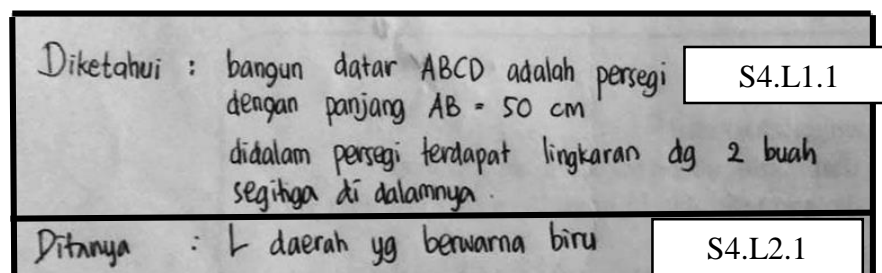 Diketahui : bangun datar ABCD adalah persegi S4.L1.1
dengan panjang AB = 50 cm
didalam persegi terdapat lingkaran dg 2 buah
segitiga di dalamnya.
Ditanya : L daerah yg berwarna biru S4.L2.1